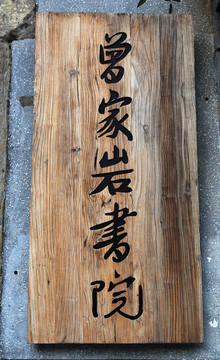 曾家岩書院